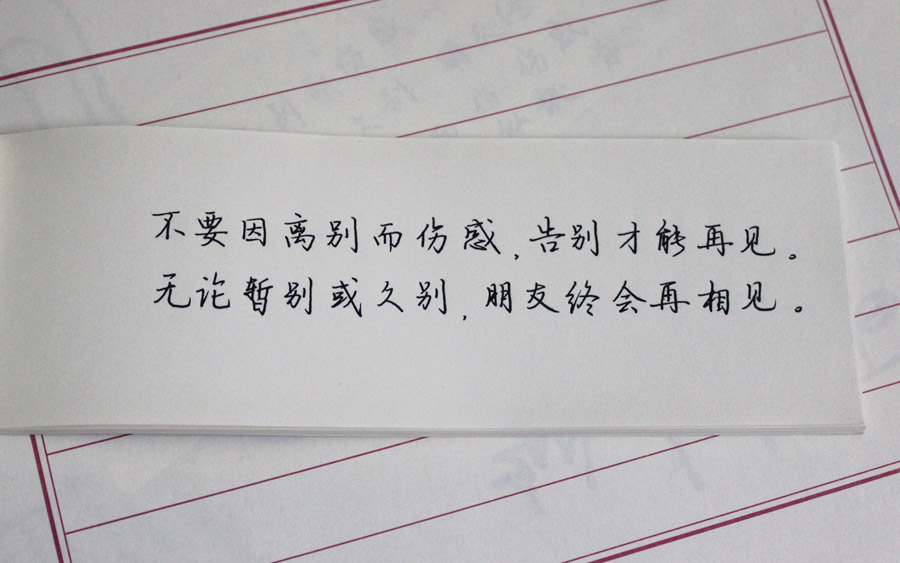 不要因离别而伤惑,告别才能再见。
无论暂别或久别,朋友终会再相见。